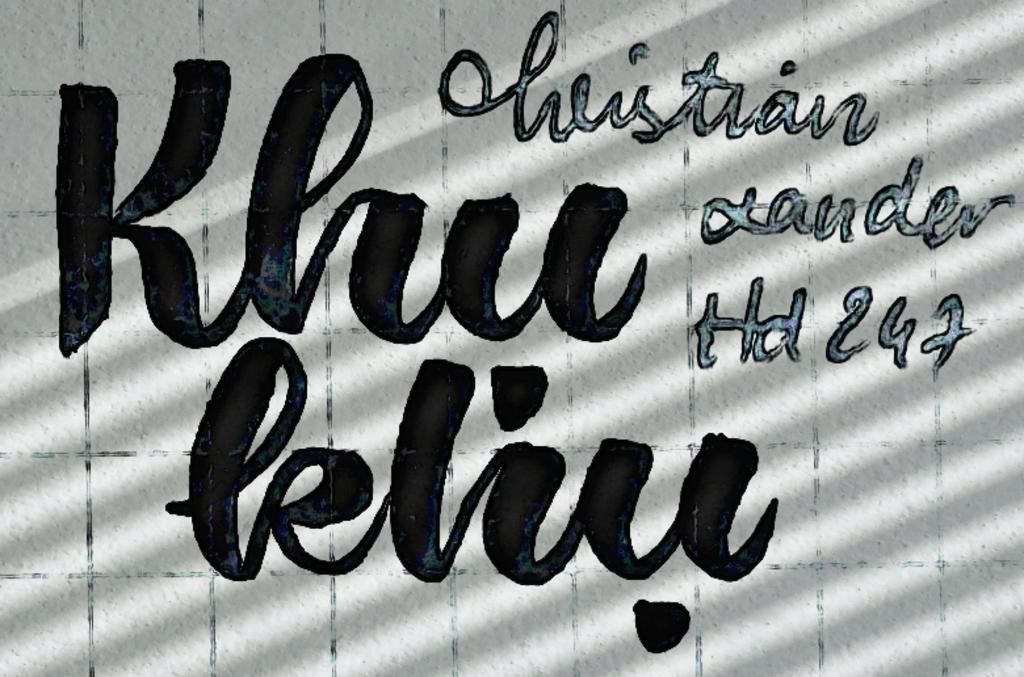 Khu
Christian
xander
Hd 247
keliụ